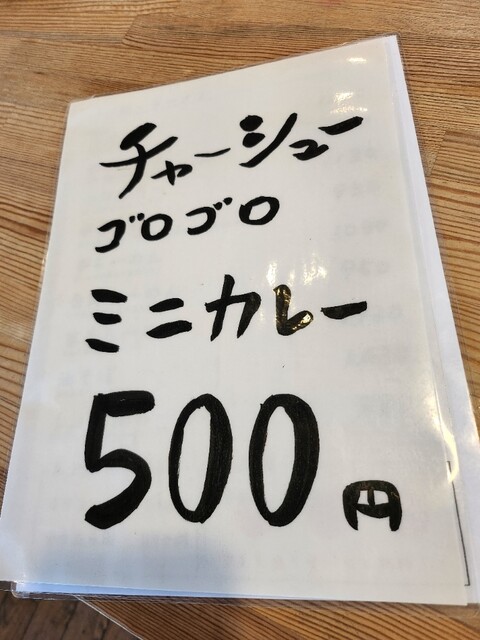 チャーシュー
ゴロゴロ
ミニカレー
500円